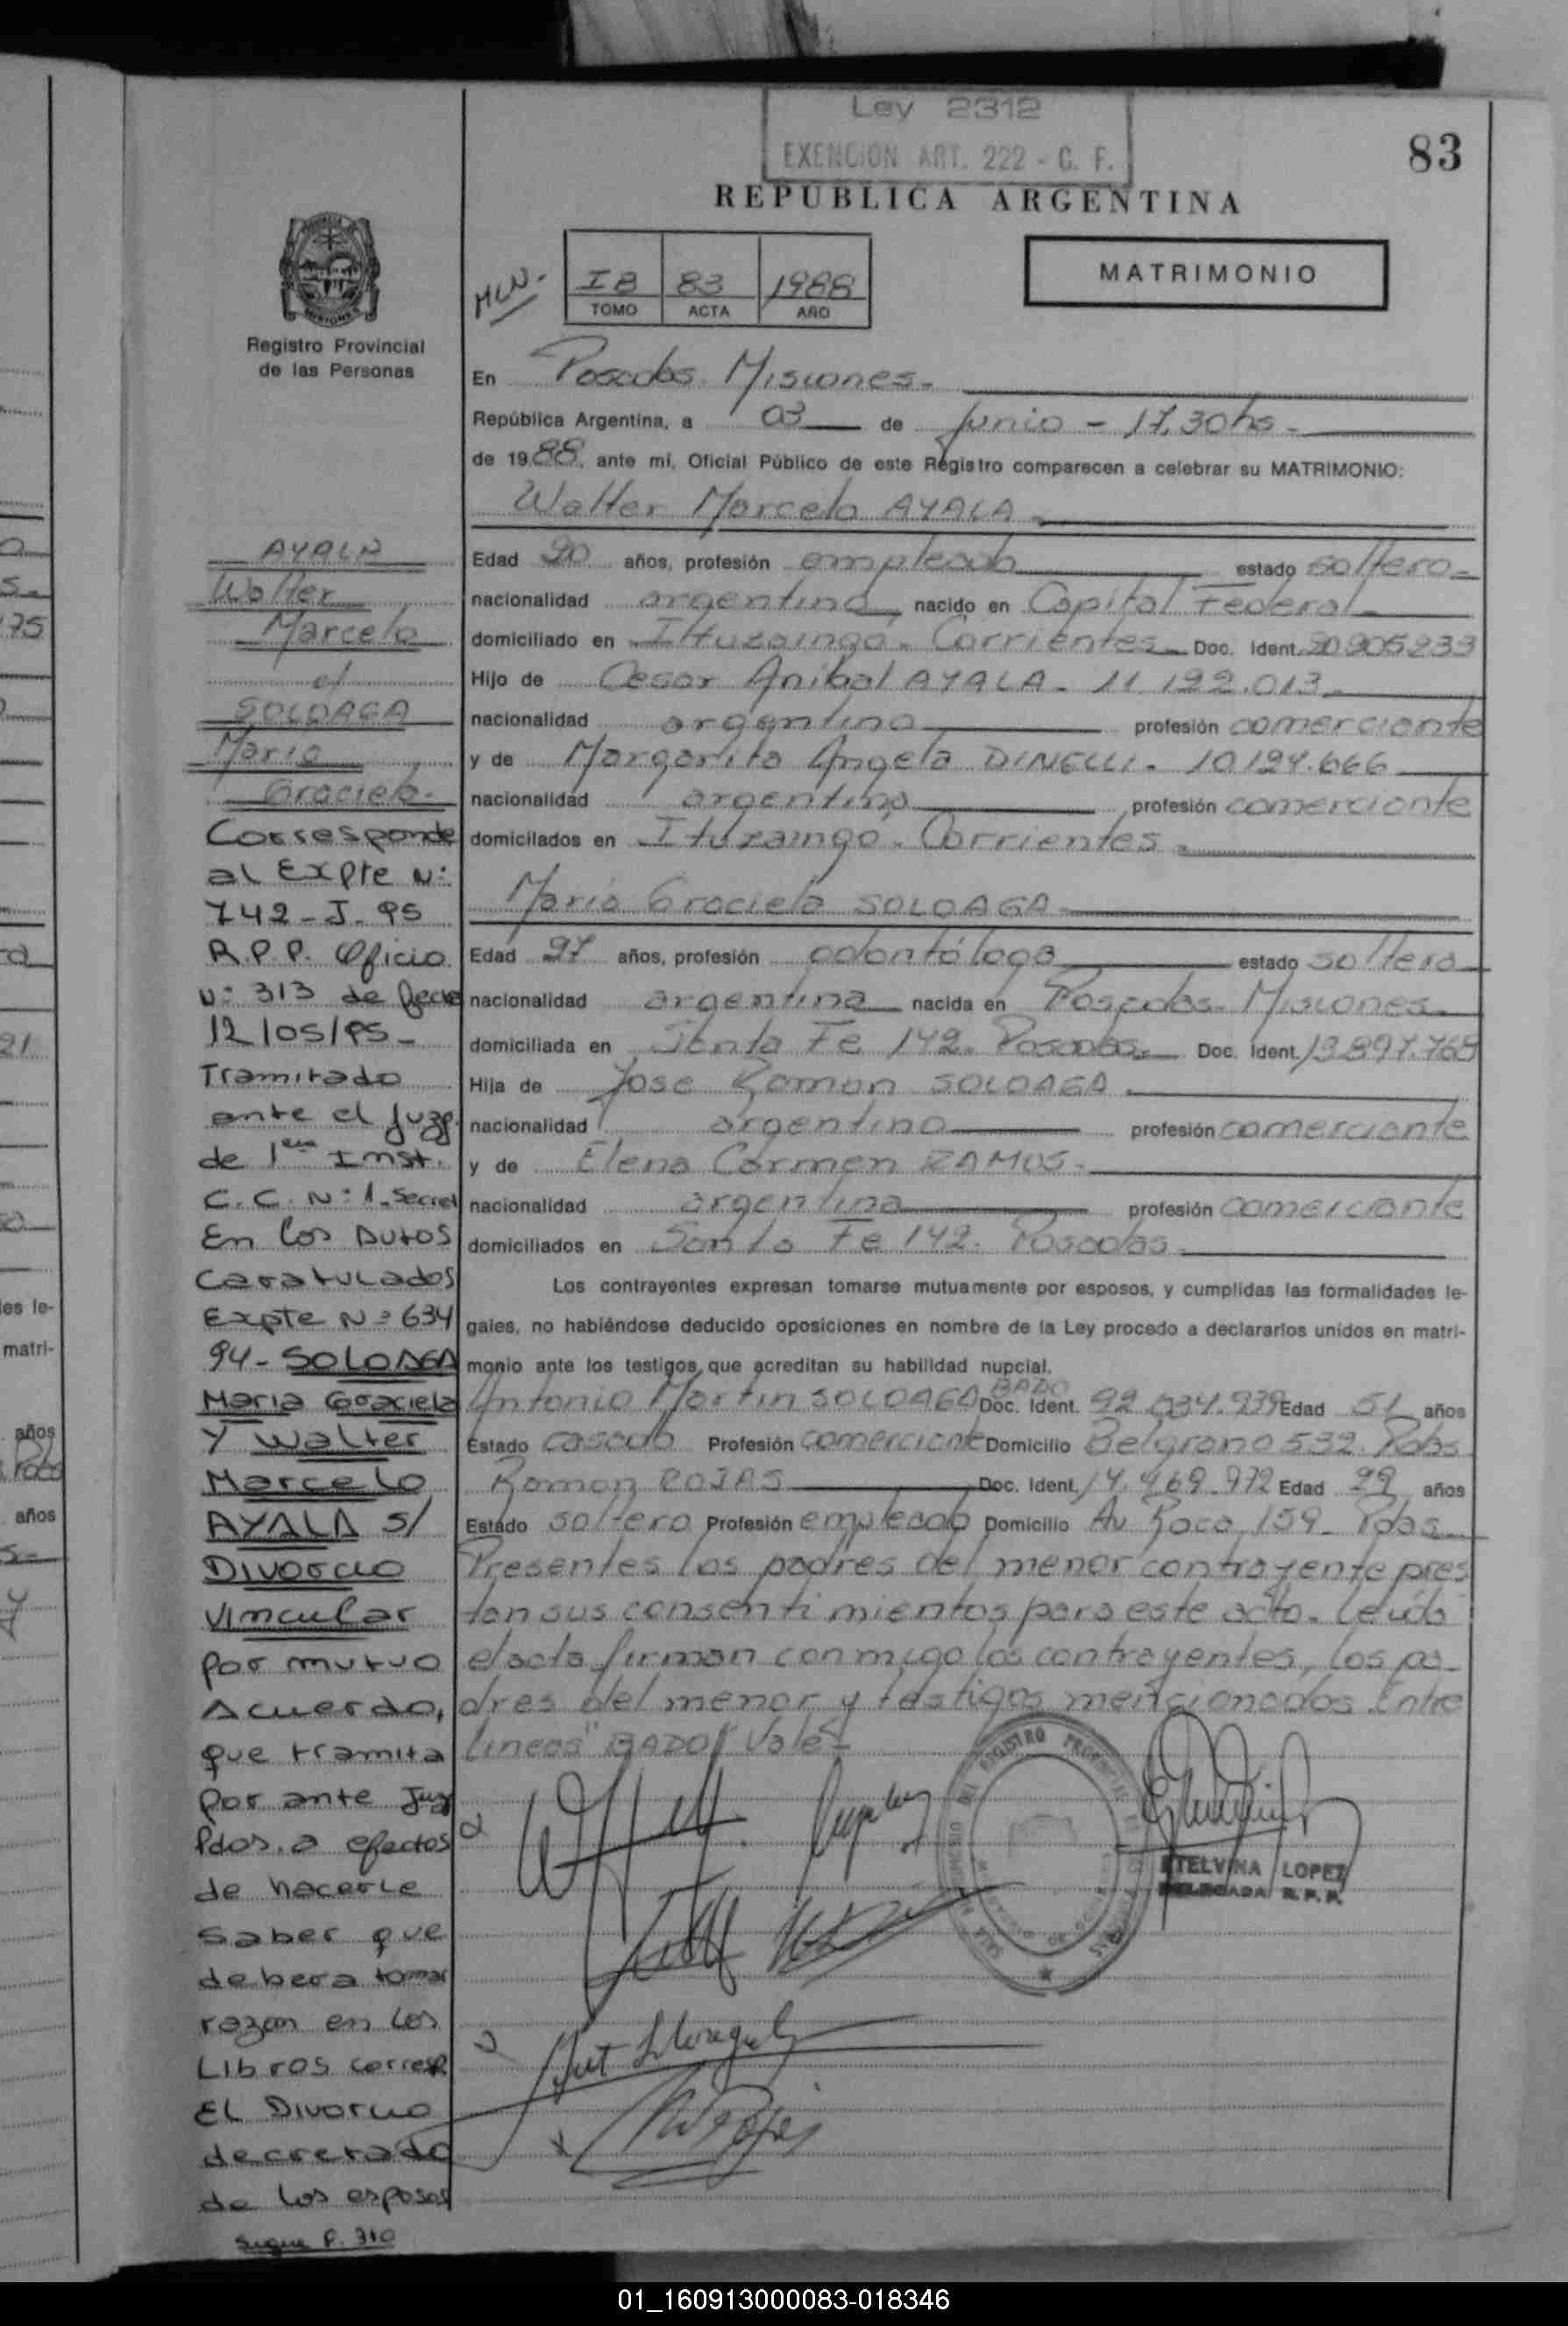 Ley 2312
EXENCION ART. 222 - C. F.
83
REPUBLICA ARGENTINA
MATRIMONIO
MLN-
I B 83 1988
TOMO ACTA AÑO
MISIONES
Registro Provincial
de las Personas
En Posadas Misiones.
República Argentina, a 03 de Junio - 17,30 hs -
de 1988, ante mí, Oficial Público de este Registro comparecen a celebrar su MATRIMONIO:
Walter Marcelo AYALA
Edad 20 años, profesión empleado estado soltero
nacionalidad argentino nacido en Capital Federal
domiciliado en Ituzaingó. Corrientes Doc. Ident. 20.905.233
Hijo de Cesar Anibal AYALA - 11.192.013
nacionalidad argentino profesión comerciante
y de Margarita Angela DINELLI - 10.124.666
nacionalidad argentina profesión comerciante
domicilados en Ituzaingó. Corrientes.
Maria Graciela SOLOAGA
Edad 27 años, profesión odontóloga estado soltera
nacionalidad argentina nacida en Posadas. Misiones
domiciliada en Santa Fe 142. Posadas. Doc. Ident. 13.897.768
Hija de Jose Ramon SOLOAGA
nacionalidad argentino profesión comerciante
y de Elena Carmen RAMOS.
nacionalidad argentina profesión comerciante
domiciliados en Santa Fe 142. Posadas.
Los contrayentes expresan tomarse mutuamente por esposos, y cumplidas las formalidades le-
gales, no habiéndose deducido oposiciones en nombre de la Ley procedo a declararlos unidos en matri-
monio ante los testigos que acreditan su habilidad nupcial.
BADO
Antonio Martin SOLOAGA Doc. Ident. 92.034.939 Edad 51 años
Estado casado Profesión comerciante Domicilio Belgrano 532. Pdas
Ramon ROJAS Doc. Ident. 14.469.972 Edad 29 años
Estado soltero Profesión empleado Domicilio Av Roca 159 - Pdas
Presentes los padres del menor contrayente pres
tan sus consentimientos para este acto. Leida
el acta firman conmigo los contrayentes, los pa-
dres del menor y testigos mencionados. Entre
lineas "BADO" Vale-
ETELVINA LOPEZ
DELEGADA R. P. P.
AYALA
Walter
Marcelo
c/
SOLOAGA
Maria
Graciela.
Corresponde
al Expte N:
742-J-95
R.P.P. Oficio
N: 313 de fecha
12/05/95-
Tramitado
ante el Juzg.
de 1era Inst.
C.C. N: 1. Secret
En los Autos
Caratulados
Expte N: 634
94- SOLOAGA
Maria Graciela
Y Walter
Marcelo
AYALA S/
Divorcio
Vincular
por mutuo
Acuerdo,
que tramita
por ante Juz
Pdos. a efectos
de hacerle
saber que
debera tomar
razon en los
Libros corresp
El Divorcio
decretado
de los esposos
Sigue F. 310
01_160913000083-018346